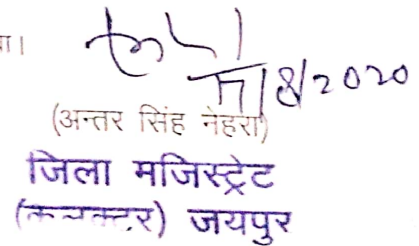 8/2020
(अन्तर सिंह नेहरा)
जिला मजिस्ट्रेट
(कलक्टर) जयपुर